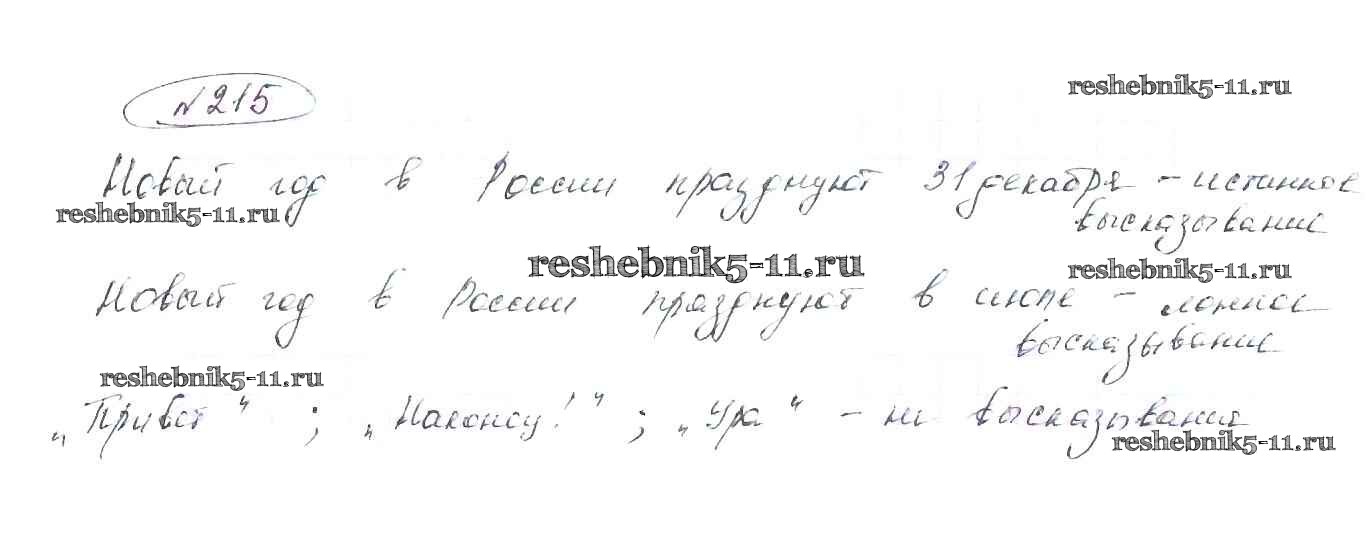 №215
reshebnik5-11.ru
Новый год в России празднуют 31 декабря - истинное
высказывание
reshebnik5-11.ru
reshebnik5-11.ru
reshebnik5-11.ru
Новый год в России празднуют в июле - ложное
высказывание
reshebnik5-11.ru
„Привет“ ; „Наконец!“ ; „Ура“ - не высказывания
reshebnik5-11.ru